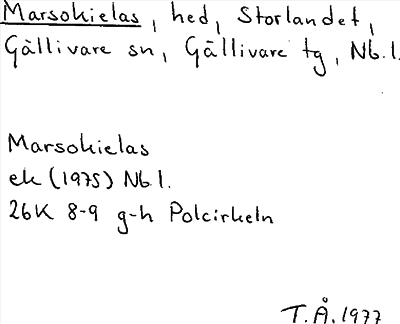 Marsokielas, hed, Storlandet,
Gällivare sn, Gällivare tg, Nb.l.
Marsokielas
ek (1975) Nb l.
26K 8-9 g-h Polcirkeln
T.Å. 1977